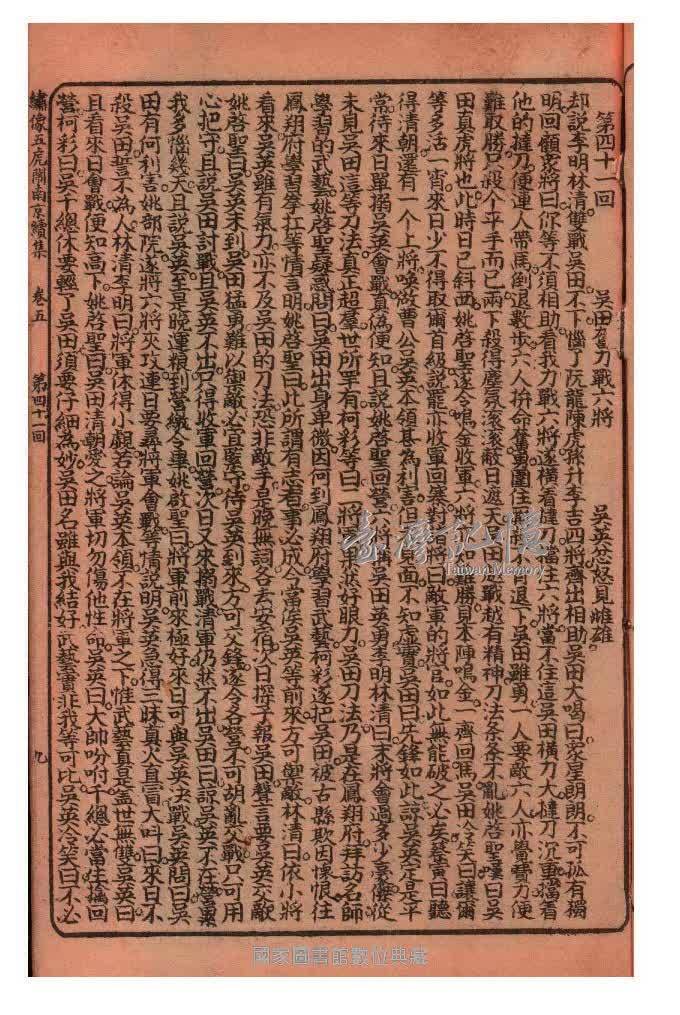 第四十一回　吳田隻刀戰六將　吳英忿怒見雌雄
却說李明林清雙戰吳田不下惱了阮龍陳虎孫升李吉四將齊出相助吳田大喝曰眾星朗朗不可孤有獨
明回顧眾將曰你等不須相助看我力戰六將遂橫看撻刀當住六將當不住這吳田橫刀大撻刀沉重擋着
他的撻刀便連人帶馬倒退數步六人拚命奮勇圍住退下吳田雖勇一人要敵六人亦覺費力便
難取勝只殺个平手而已兩下殺得塵氛滾滾蔽日遮天吳田愈戰越有精神刀法条条不亂姚啓聖嘆曰吳
田真虎將也此時日已斜西姚啓聖遂令鳴金收軍六將勝見本陣鳴金一齊回馬吳田冷笑曰讓爾
等多活一宵來日少不得取爾首級說罷亦收軍回寨對諸將曰敵軍的將官如此無能破之必矣蔡黃曰聽
得清朝還有一个上將喚故曹公吳英本領甚為利害但見面不知虛實吳田曰先鋒如此諒吳英定是平
常待來日單搦吳英會戰真為便知且說姚啓聖回營六將稱吳田英勇李明林清曰末將會過多少豪傑從
未見吳田這等刀法真正超羣世所罕有柯彩等曰二將果然好眼力吳田刀法乃是在鳳翔府拜訪名師
學習的武藝姚啓聖疑惑問曰吳田出身卑微因何到鳳翔府學習武藝柯彩遂把吳田被古縣欺因懷恨往
鳳翔府學習拏扛等情言明姚啓聖曰此所謂有志者事必成今當俟吳英等前來方可禦敵林清曰依小將
看來吳英雖有氣力亦不及吳田的刀法恐非敵手是晚無詞各去安宿次日探子報吳田聲言要吳英交敵
姚啓聖曰吳英未到吳田猛勇難以禦敵必宜堅守待吳英到來方可交鋒遂令各營不可胡亂交戰只可用
心把守且說吳田討戰且吳英不出只得收軍回營次日又來搦戰清軍仍然不出吳田曰諒吳英不在營累
我多惱幾天且說吳英至是晚運糧到營繳令畢姚啟聖曰將軍前來極好來日可與吳英决戰吳英問曰吳
田有何利害姚部院遂將六將夾攻連日要尋將軍會戰等情說明吳英急得三昧真火直冒大叫曰來日不
殺吳田誓不為人林清李明曰將軍休得小覷若論吳英本領不在將軍之下惟武藝真是蓋世無雙吳英曰
且看來日會戰便知高下姚啓聖曰吳田清朝愛之將軍切勿傷他性命吳英曰大帥吩咐千總必當生擒回
營柯彩曰吳千總休要輕了吳田須要仔細為妙吳田名雖與我結好武藝實非我等可比吳英冷笑曰不必
繡像五虎鬧南京續集　卷五　第四十一回　九
臺灣記憶
Taiwan Memory
國家圖書館數位典藏